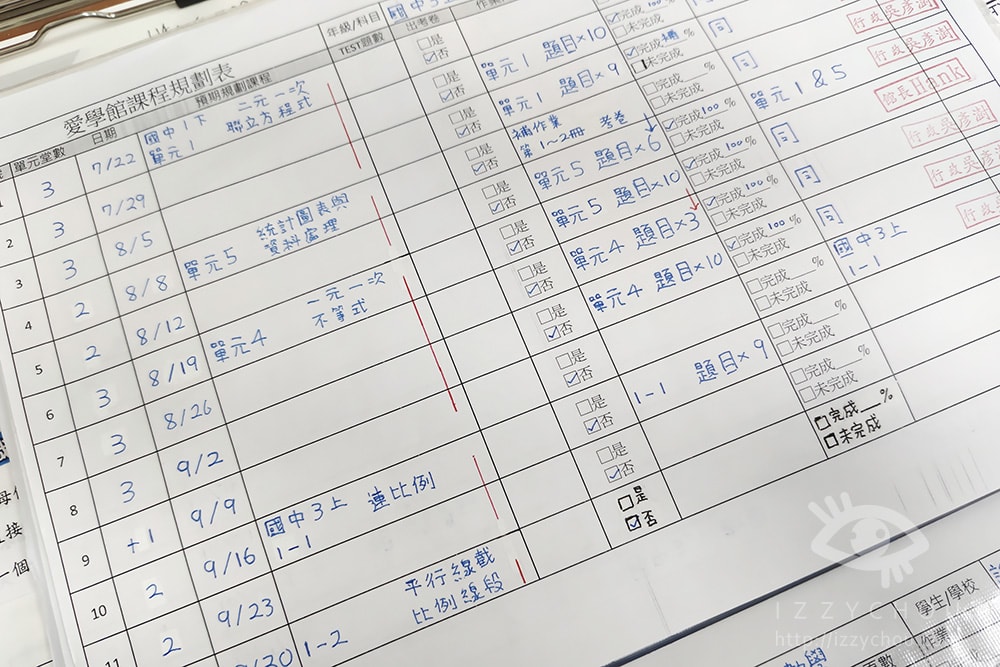 愛學館課程規劃表
年級/科目 國中3上
單元堂數 日期 預期規劃課程 TEST題數 出考卷
3 7/22 國中1下 二元一次
單元1 聯立方程式
□是
☑否
單元1 題目×10
☑完成
□未完成
行政吳彥澍
2 3 7/29
□是
☑否
單元1 題目×9
☑完成 %
未完成
同
行政吳彥澍
3 3 8/5
□是
☑否
補作業 考卷
第1~2冊
□完成 %
□未完成
同
館長Hank
4 2 8/8 單元5 統計圖表與
資料處理
□是
☑否
單元5 題目×6
☑完成100%
□未完成
單元1&5
行政吳彥澍
5 2 8/12
□是
☑否
單元5 題目×10
☑完成100%
□未完成
同
行政吳彥澍
6 3 8/19 單元4 一元一次
不等式
□是
☑否
單元4 題目×3
☑完成100%
□未完成
同
7 3 8/26
□是
☑否
單元4 題目×10
☑完成100%
□未完成
同
8 3 9/2
□是
☑否
□完成 %
□未完成
國中3上
1-1
9 +1 9/9
□是
☑否
1-1 題目×9
□完成 %
□未完成
10 2 9/16 國中3上 連比例
1-1
□是
☑否
□完成 %
□未完成
11 2 9/23
□是
☑否
□完成 %
□未完成
1-2 平行線截
比例線段
IZZYCHO
http://izzycho
學生/學校
作業